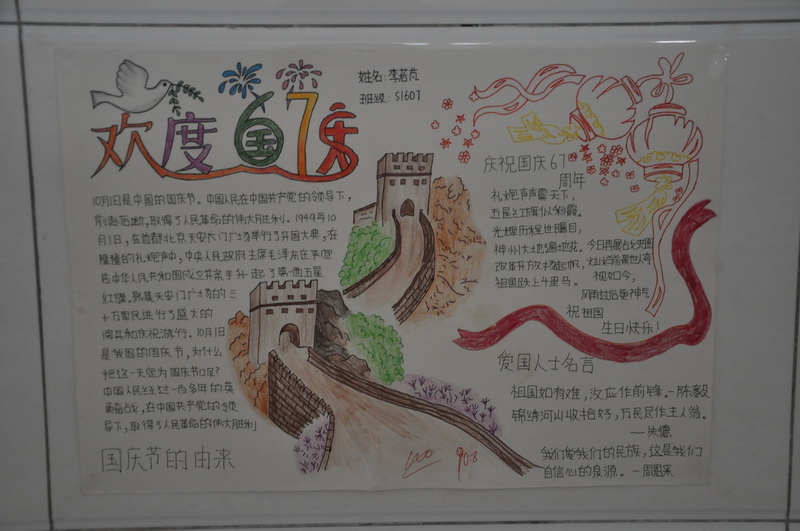 姓名:李若芃
班级:S1607
欢度国庆
67
10月1日是中国的国庆节。中国人民在中国共产党的领导下,
前赴后继,取得了人民革命的伟大胜利。1949年10
月1日,在首都北京天安门广场举行了开国大典,在
隆隆的礼炮声中,中央人民政府主席毛泽东庄严宣
告中华人民共和国成立并亲手升起了第一面五星
红旗。聚集天安门广场的三
十万军民进行了盛大的
阅兵和庆祝游行。10月1日
是我国的国庆节,为什么
把这一天定为国庆节呢?
中国人民经过一百多年的英
勇奋战,在中国共产党的领
导下,取得了人民革命的伟大胜利
国庆节的由来
庆祝国庆67
周年
礼炮声声震天下,
五星红旗似彩霞。
光辉历程世瞩目,
神州大地遍地花。
改革开放
祖国跃上千里马。
今日再展
风雨过后更神气
祝祖国
生日快乐!
爱国人士名言
祖国如有难,汝应作前锋。-陈毅
锦绣河山收拾好,万民尽作主人翁。
——朱德
我们爱我们的民族,这是我们
自信心的泉源。-周恩来
90.8